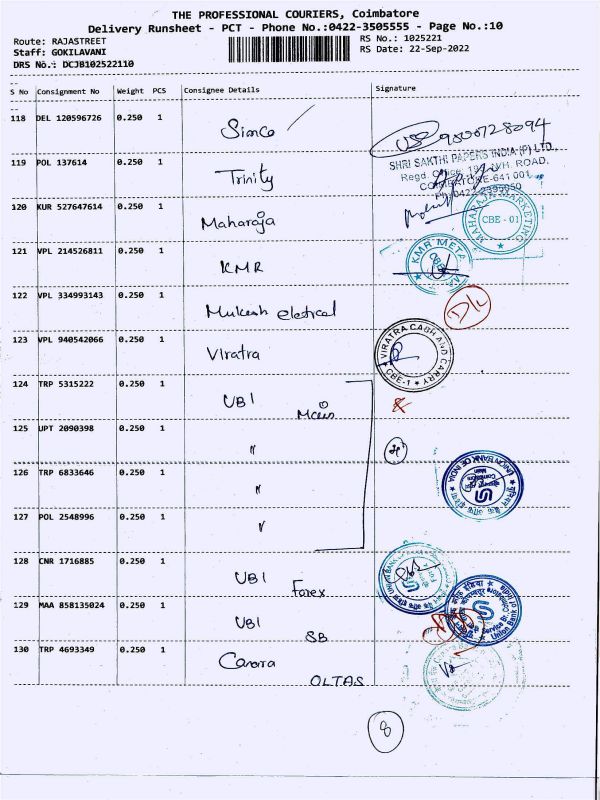 THE PROFESSIONAL COURIERS, Coimbatore
Delivery Runsheet - PCT - Phone No.:0422-3505555 - Page No.:10
Route: RAJASTREET
Staff: GOKILAVANI
DRS No.: DCJB102522110
RS No.: 1025221
RS Date: 22-Sep-2022
S No Consignment No Weight PCS Consignee Details Signature
118 DEL 120596726 0.250 1 Simco
119 POL 137614 0.250 1 Trinity
SHRI SAKTHI PAPERS INDIA (P) LTD.,
COIMBATORE-641 001.
120 KUR 527647614 0.250 1 Maharaja
MAHARAJA MARKETING
CBE - 01
121 VPL 214526811 0.250 1 KMR
KMR META
122 VPL 334993143 0.250 1 Mukesh eletrical D/L
123 VPL 940542066 0.250 1 Viratra
VIRATRA CASH AND CARRY
CBE-1
124 TRP 5315222 0.250 1 UBI Main
125 UPT 2090398 0.250 1 "
126 TRP 6833646 0.250 1 "
UNION BANK OF INDIA
127 POL 2548996 0.250 1 "
128 CNR 1716885 0.250 1 UBI Forex
129 MAA 858135024 0.250 1 UBI SB
130 TRP 4693349 0.250 1 Canara OLTAS
8